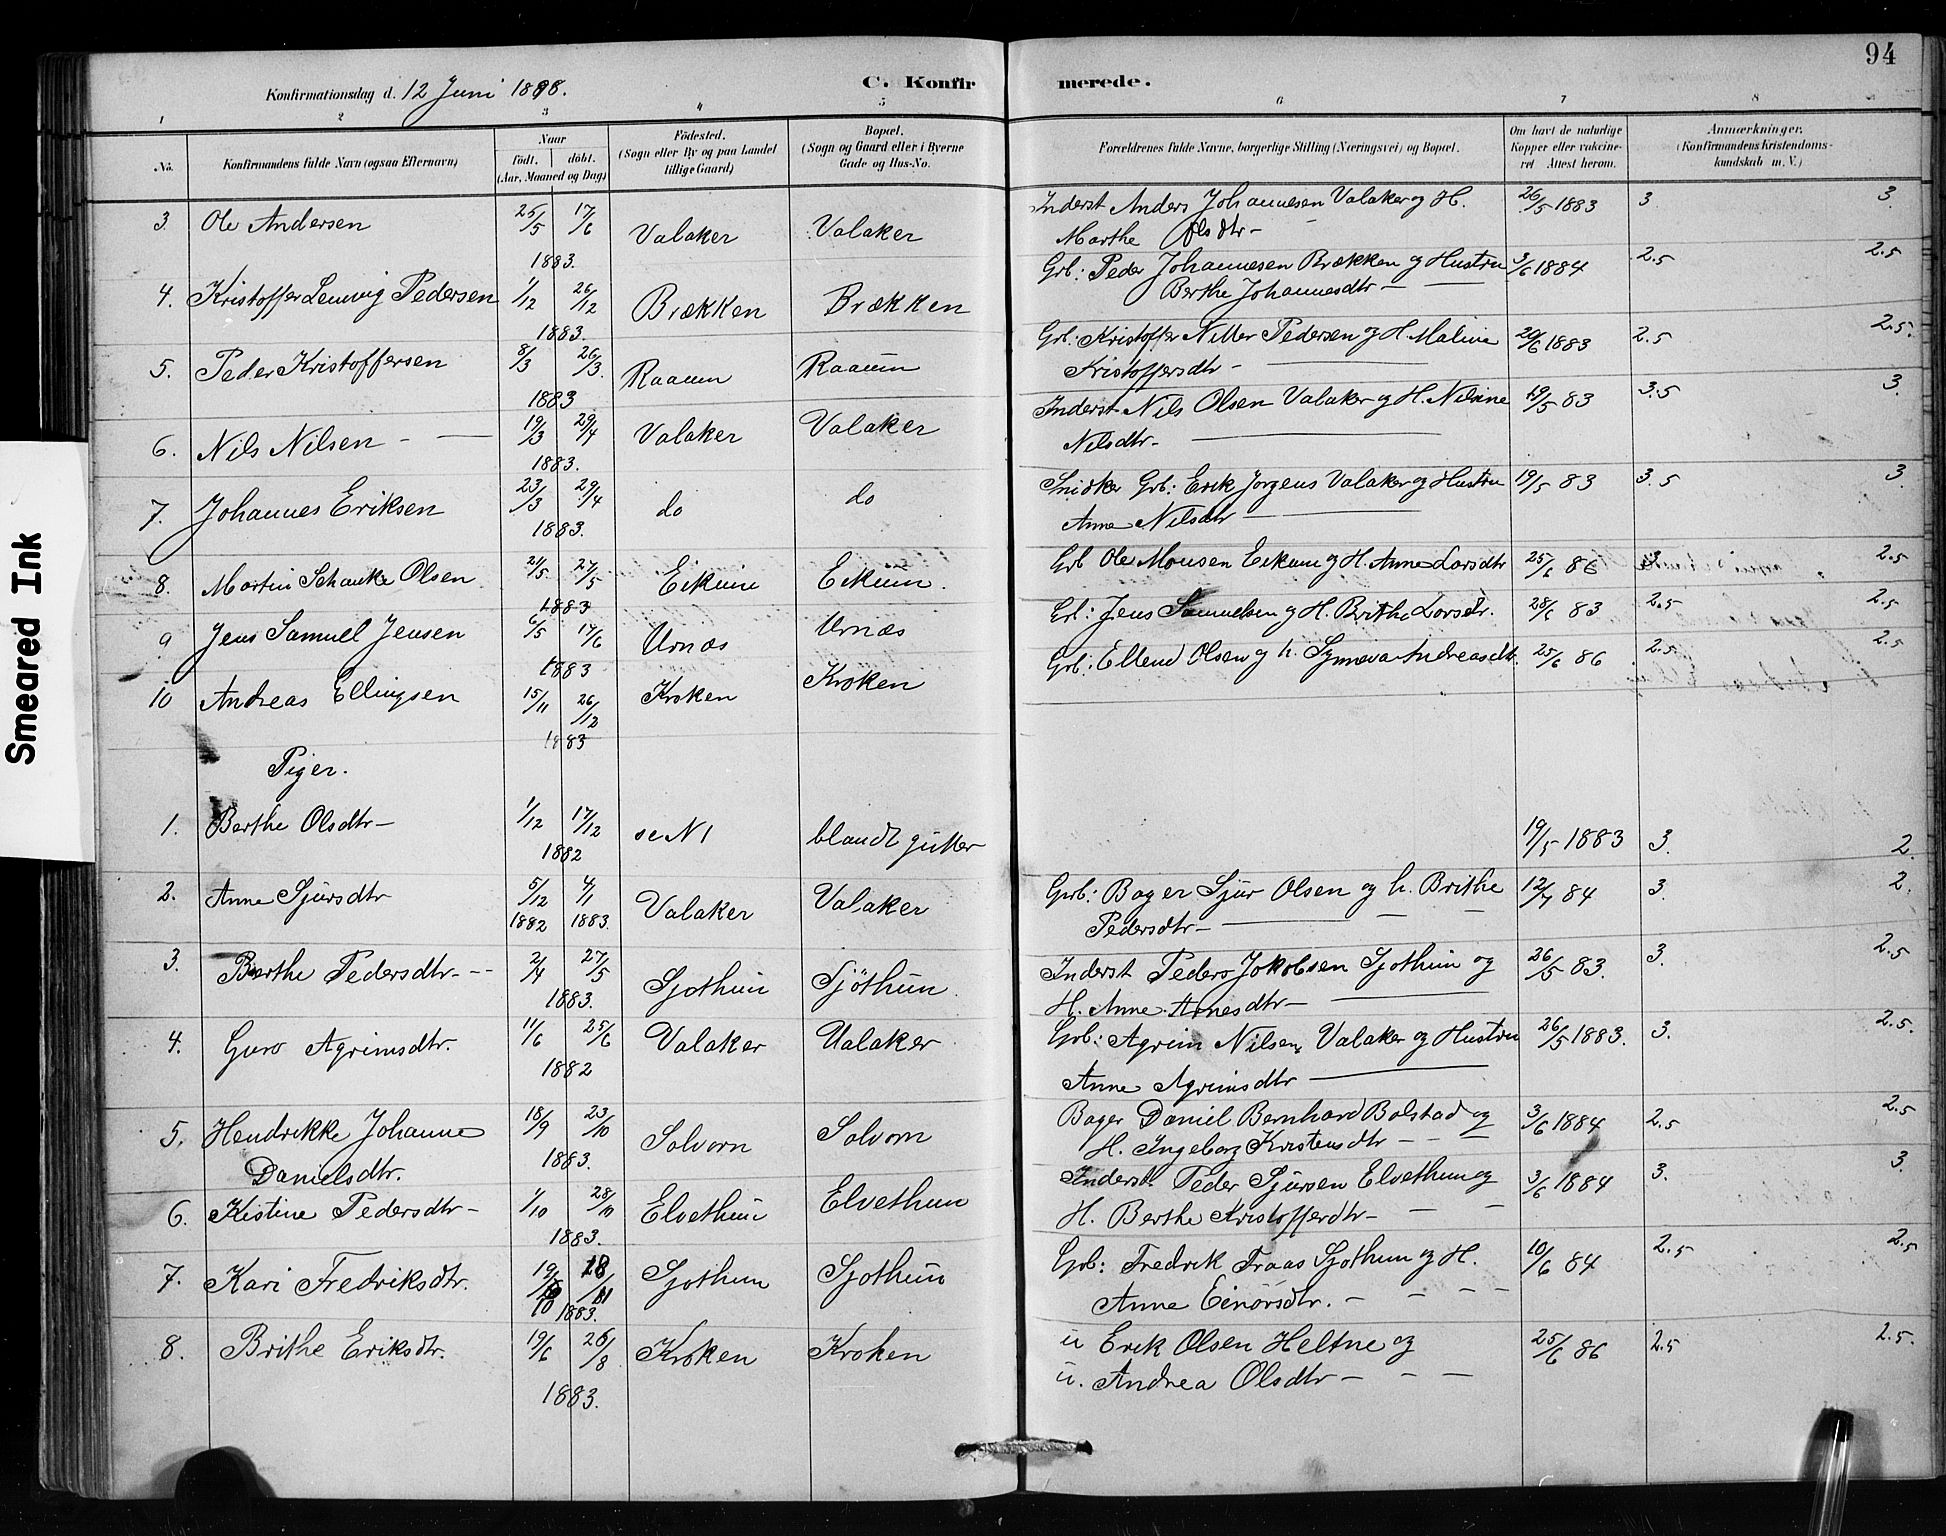 94
Konfirmationsdag d. 12 Juni 1898.
C. Konfirmerede.
1 2 3 4 5 6 7 8
No.
Konfirmandens fulde Navn (ogsaa Efternavn)
Naar
født. døbt.
(Aar, Maaned og Dag)
Fødested.
(Sogn eller By og paa Landet
tillige Gaard)
Bopæl.
(Sogn og Gaard eller i Byerne
Gade og Hus-No.
Forældrenes fulde Navne, borgerlige Stilling (Næringsvei) og Bopæl.
Om havt de naturlige
Kopper eller vaccine-
ret Attest herom.
Anmærkninger.
(Konfirmandens Kristendoms-
kundskab m. V.)
Smeared Ink
3. Ole Andersen 25/5 17/6 Valaker Valaker Inderst Anders Johannesen Valaker og H. 26/5 1883 3 3.
1883. Marthe Olsdtr-
4. Kristoffer Lauvig Pedersen 1/12 26/12 Brækken Brækken Grb: Peder Johannesen Brækken og Hustru 3/6 1884 2.5 2.5
1883. Berthe Johannesdtr -
5. Peder Kristoffersen 8/3 26/3 Raaum Raaum Grb: Kristoffer Nitter Pedersen og H. Maline 20/6 1883 2.5 2.5.
1883 Kristoffersdtr -
6. Nils Nilsen - 19/3 29/4 Valaker Valaker Inderst Nils Olsen Valaker og H. Nilsine 19/5 83 3.5 3.
1883. Nilsdtr-
7. Johannes Eriksen 23/3 29/4 do do Snidker Grb: Erik Jorgens Valaker og Hustru 19/5 83 3.5 3
1883. Anne Nilsdtr
8. Martin Schanke Olsen 21/5 27/5 Eikum Eikum. Grb Ole Monsen Eikum og H. Anne Larsdtr 25/6 86 3. 2.5
1883
9 Jens Samuel Jensen 6/5 17/6 Urnæs Urnæs Grb: Jens Samuelsen og H. Brithe Larsdtr. 28/6 83 2.5 2.5
1883
10 Andreas Ellingsen 15/11 26/12 Kroken Kroken Grb: Ellend Olsen og h. Synneva Andreasdt. 25/6 86 2.5 2.5
1883
Piger.
1. Berthe Olsdtr - 1/12 17/12 se N 1 blandt gutter 19/5 1883 3. 2.
1882
2. Anne Sjursdtr 5/12 4/1 Valaker Valaker Grb: Bager Sjur Olsen og h. Brithe 12/7 84 3. 2.
1882 1883. Pedersdtr -
3. Berthe Pedersdtr - - 2/4 27/5 Sjothun Sjöthun. Inderst Peders Jokobsen Sjothun og 26/5 83. 3. 2.5
1883. H. Anne Arnesdtr -
4. Guro Agrimsdtr. 11/6 25/6 Valaker Valaker Grb: Agrim Nilsen Valaker og Hustru 26/5 1883. 3. 2.5.
1882 Anne Agrimsdtr
5. Hendrikke Johanne 18/9 23/10 Solvorn Solvorn Bager Daniel Bernhard Bolstad og 3/6 1884 2.5 2.5
Danielsdtr. 1883. H. Ingeborg Kristensdtr - -
6. Kistine Pedersdtr - 1/10 28/10 Elvethun Elvethun Inderst. Peder Sjursen Elvethun og 3/6 1884 3. 3.
1883. H. Berthe Kristofferdtr - - -
7. Kari Fredriksdtr. 19/10 18/11 Sjothun Sjothun Grb: Fredrik Traas Sjothun og H. 10/6 84 2.5 2.5
10 1883. Anne Einarsdtr. - - - -
8. Brithe Eriksdtr. 19/6 26/8 Kroken Kroken u Erik Olsen Heltne og 25/6 86 2.5 2.5.
1883. u. Andrea Olsdtr - - -